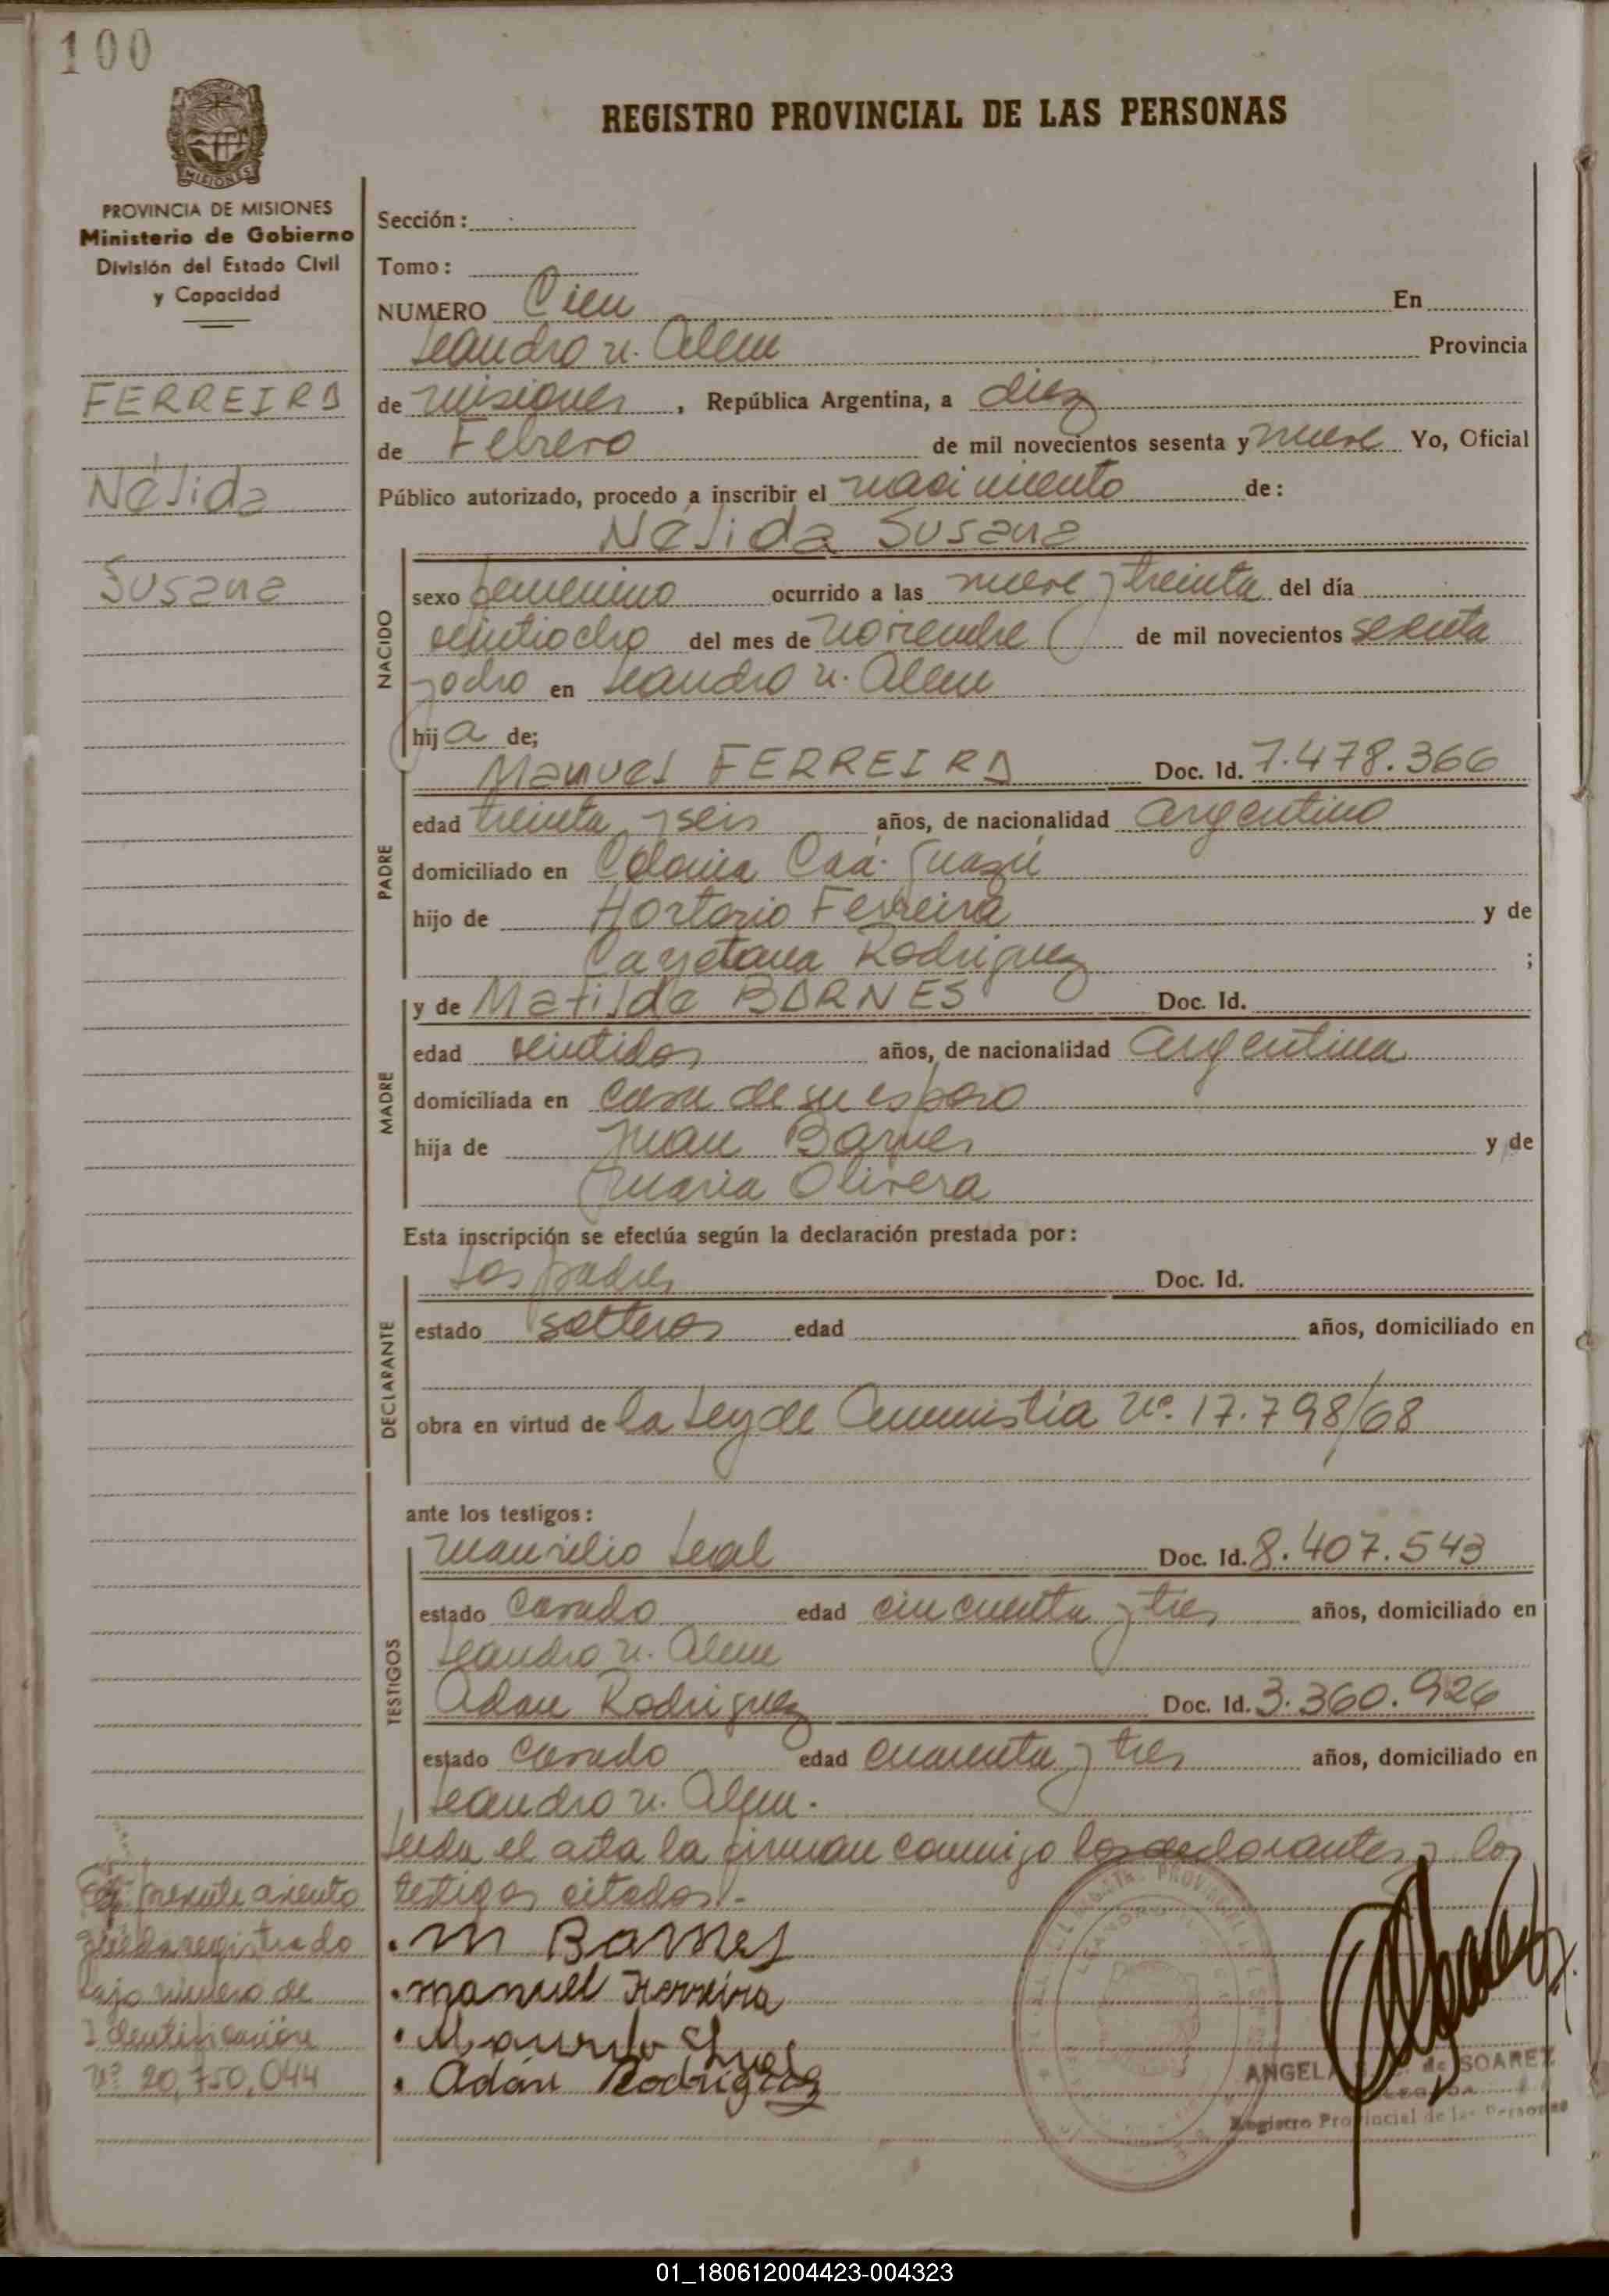 100
PROVINCIA DE MISIONES
Ministerio de Gobierno
División del Estado Civil
y Capacidad
FERREIRA
Nélida
Susana
REGISTRO PROVINCIAL DE LAS PERSONAS
Sección:
Tomo:
NUMERO Cien En
Leandro N. Alem Provincia
de Misiones, República Argentina, a diez
de Febrero de mil novecientos sesenta y nueve Yo, Oficial
Público autorizado, procedo a inscribir el nacimiento de:
Nélida Susana
NACIDO
sexo femenino ocurrido a las nueve y treinta del día
veintiocho del mes de Noviembre de mil novecientos sesenta
y ocho en Leandro N. Alem
hija de;
PADRE
Manuel FERREIRA Doc. Id. 7.478.366
edad treinta y seis años, de nacionalidad argentino
domiciliado en Colonia Caá-Guazú
hijo de Hortorio Ferreira y de
Cayetana Rodriguez ;
MADRE
y de Matilde BARNES Doc. Id.
edad veintidos años, de nacionalidad argentina
domiciliada en casa de su esposo
hija de Juan Barnes y de
Maria Olivera
Esta inscripción se efectúa según la declaración prestada por:
DECLARANTE
Los padres Doc. Id.
estado solteros edad años, domiciliado en
obra en virtud de la Ley de Ammistia Nº. 17.798/68
ante los testigos:
TESTIGOS
Maurilio Leal Doc. Id. 8.407.543
estado casado edad cincuenta y tres años, domiciliado en
Leandro N. Alem
Adan Rodriguez Doc. Id. 3.360.926
estado casado edad cuarenta y tres años, domiciliado en
Leandro N. Alem.
Leida el acta la firman conmigo los declarantes y los
testigos citados.-
M Barnes
Manuel Ferreira
Maurilio Leal
Adán Rodriguez
presente asiento
queda registrado
bajo número de
Identificación
Nº 20,750,044
ANGEL de SOAREZ
Registro Provincial de las Personas
01_180612004423-004323